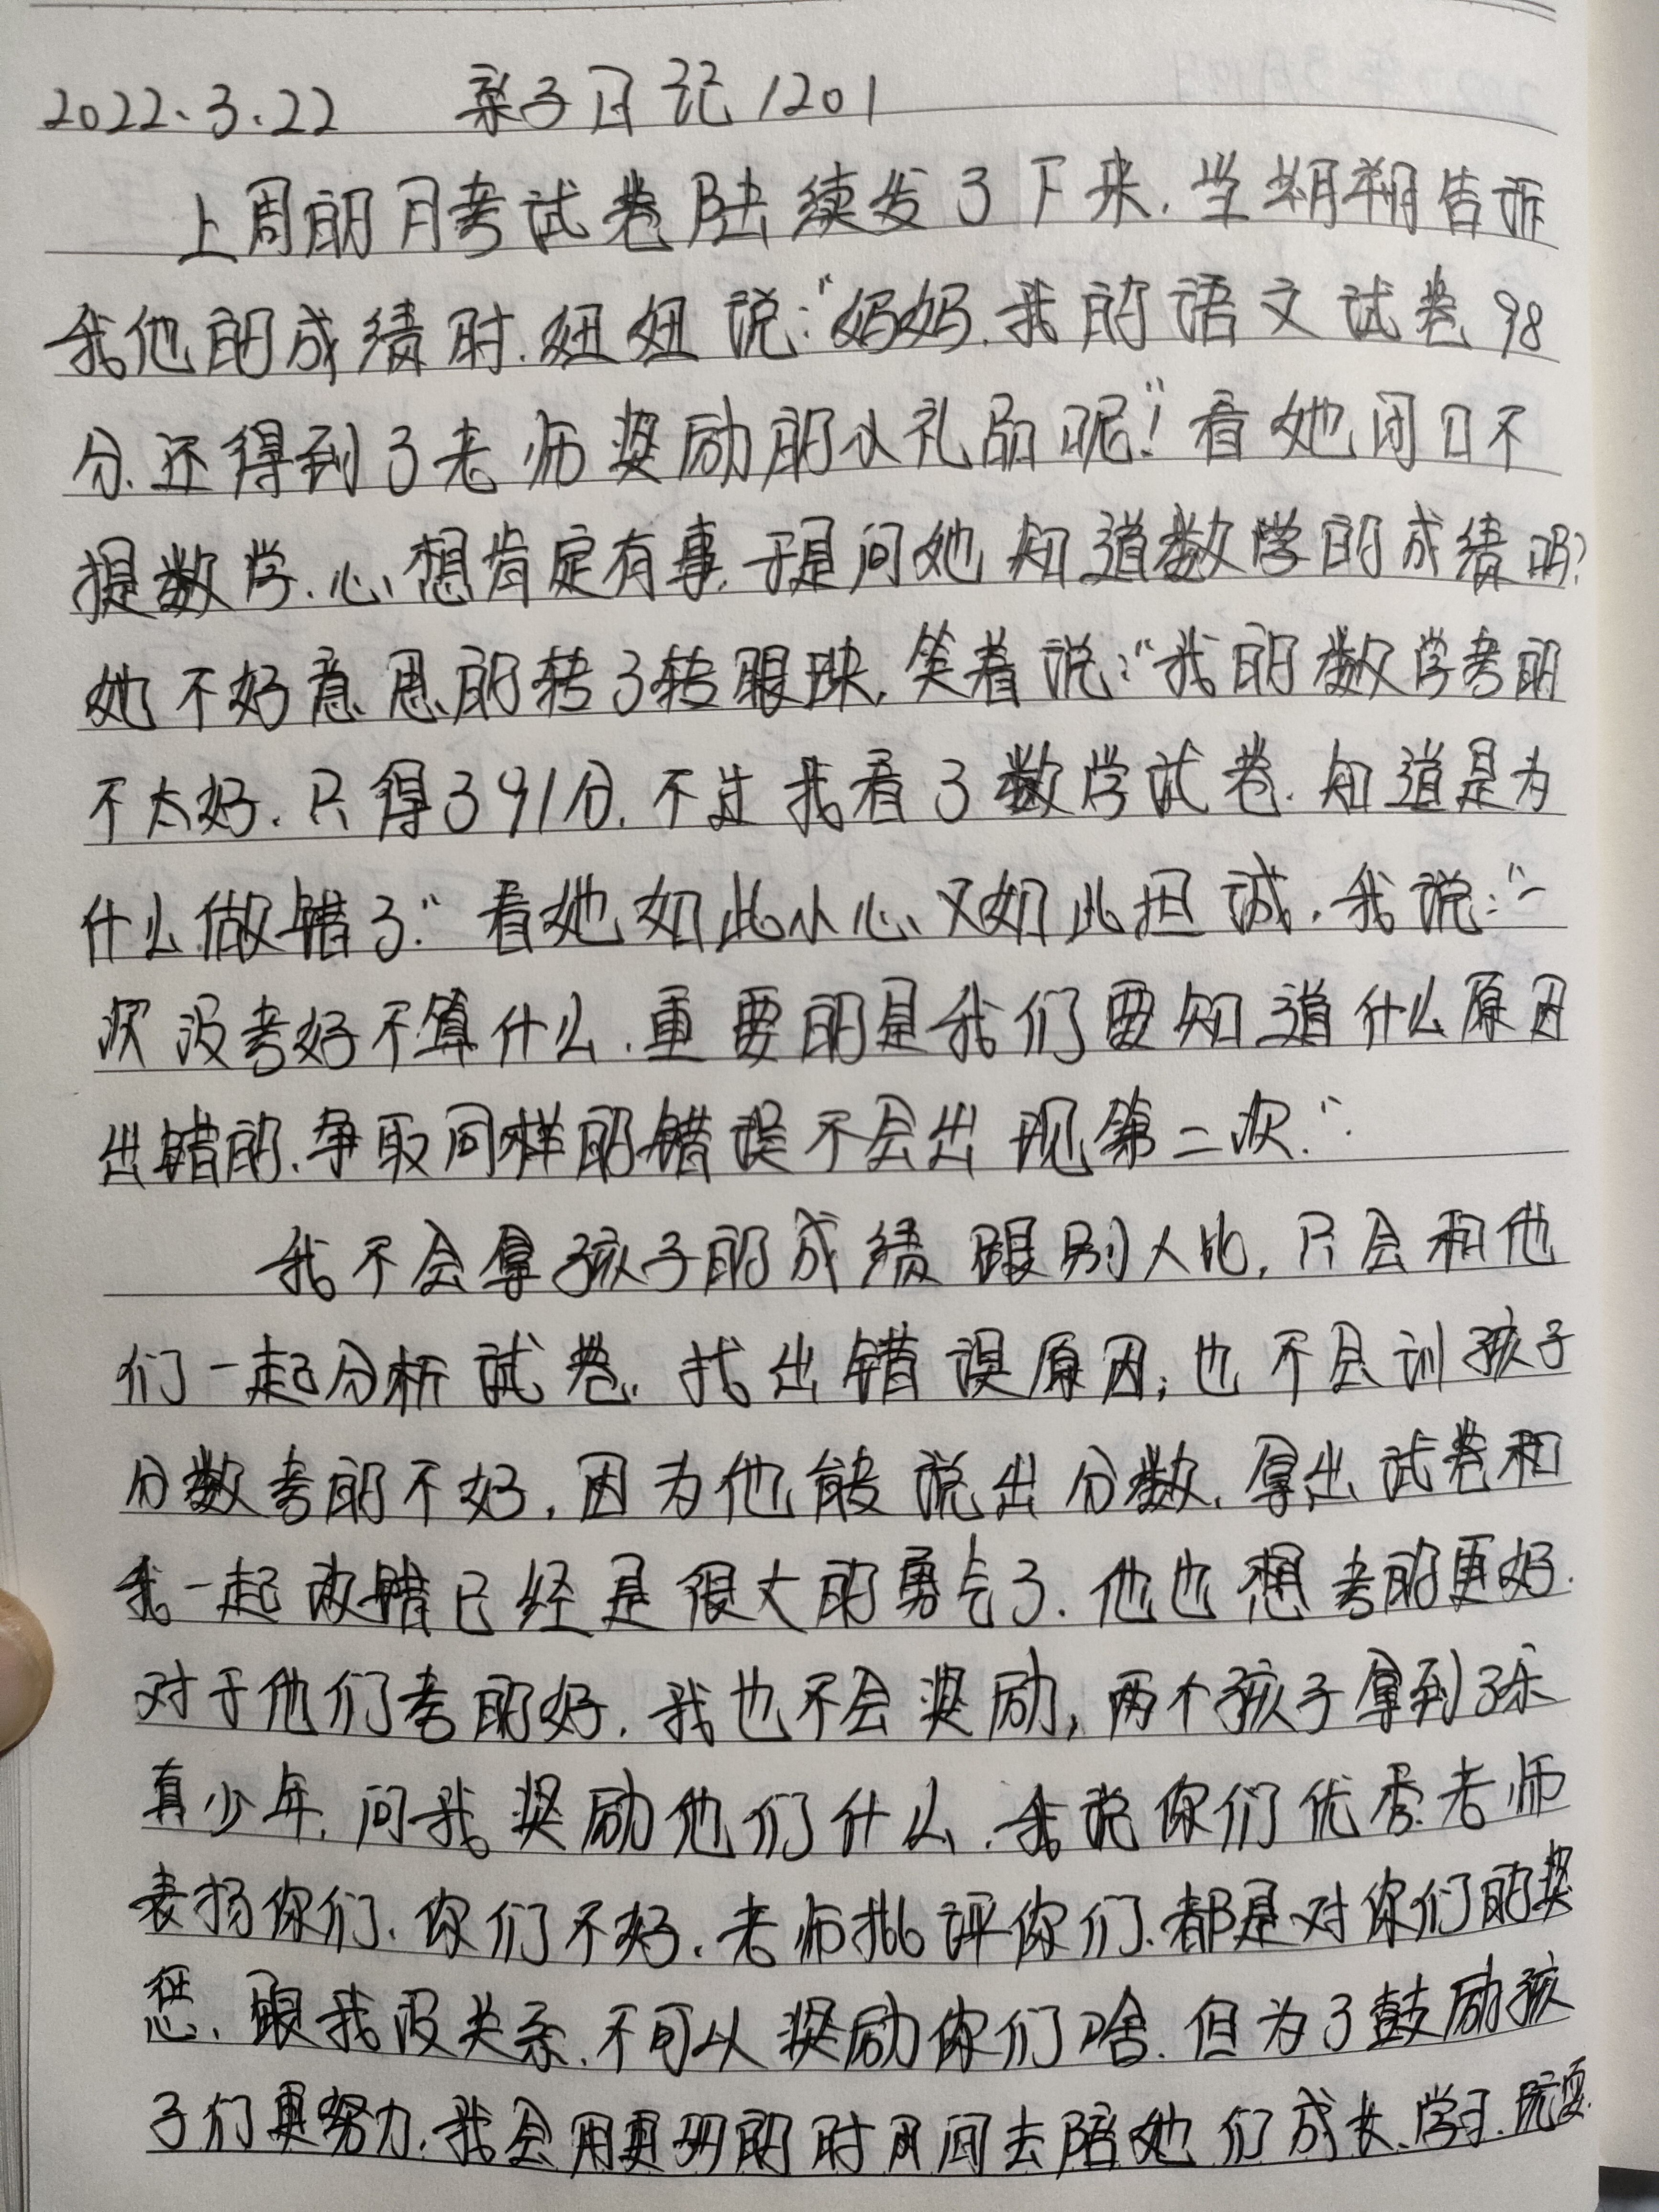 2022.3.22 亲子日记1201
上周的月考试卷陆续发了下来.当朝朝告诉
我他的成绩时.妞妞说:"妈妈.我的语文试卷98
分.还得到了老师奖励的小礼品呢!"看她闭口不
提数学.心想肯定有事.于是问她知道数学的成绩吗?
她不好意思的转了转眼珠.笑着说:"我的数学考的
不太好.只得了91分.不过我看了数学试卷.知道是为
什么做错了."看她如此小心又如此坦诚.我说:"一
次没考好不算什么.重要的是我们要知道什么原因
出错的.争取同样的错误不会出现第二次."
我不会拿孩子的成绩跟别人比,只会和他
们一起分析试卷.找出错误原因;也不会训孩子
分数考的不好,因为他能说出分数.拿出试卷和
我一起改错已经是很大的勇气了.他也想考的更好.
对于他们考的好.我也不会奖励,两个孩子拿到了乐
真少年.问我奖励他们什么.我说你们优秀.老师
表扬你们.你们不好.老师批评你们.都是对你们的奖
惩.跟我没关系.不可以奖励你们啥.但为了鼓励孩
子们更努力.我会用更多的时间去陪她们成长.学习.玩耍.